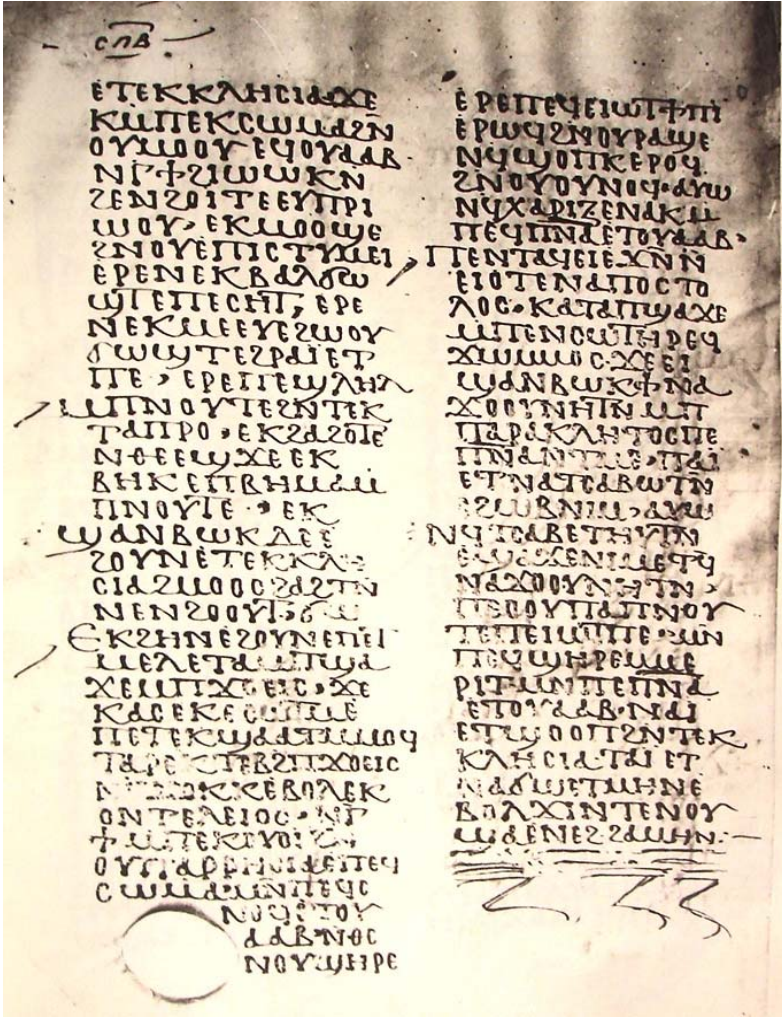 ⲥⲡⲃ
ⲉⲧⲉⲕⲕⲗⲏⲥⲓⲁ·ϫⲉ
ⲕⲙⲡⲉⲕⲥⲱⲙⲁϩⲛ̄
ⲟⲩⲙⲟⲟⲩⲉϥⲟⲩⲁⲁⲃ·
ⲛⲅϯϩⲓⲱⲱⲕⲛ
ϩⲉⲛϩⲟⲓⲧⲉⲉⲩⲡⲣⲓ
ⲱⲟⲩ·ⲉⲕⲙⲟⲟϣⲉ
ϩⲛⲟⲩⲉⲡⲓⲥⲧⲩⲙⲉⲓ
ⲉⲣⲉⲛⲉⲕⲃⲁⲗϭⲱ
ϣⲧⲉⲡⲉⲥⲏⲧ, ⲉⲣⲉ
ⲛⲉⲕⲙⲉⲉⲩⲉϩⲱⲟⲩ
ϭⲱϣⲧⲉϩⲣⲁⲓⲉⲧ
ⲡⲉ· ⲉⲣⲉⲡⲉⲕϣⲗⲏⲗ
ⲙⲡⲛⲟⲩⲧⲉϩⲛⲧⲉⲕ
ⲧⲁⲡⲣⲟ·ⲉⲕϩⲁϩⲟⲧⲉ
ⲛⲑⲉⲉϣϫⲉⲉⲕ
ⲃⲏⲕⲉⲡⲃⲏⲙⲁⲙ
ⲡⲛⲟⲩⲧⲉ· ⲉⲕ
ϣⲁⲛⲃⲱⲕⲇⲉⲉ
ϩⲟⲩⲛⲉⲧⲉⲕⲕⲗⲏ
ⲥⲓⲁϩⲙⲟⲟⲥϩⲁϩⲧⲛ
ⲛⲉⲛϩⲟⲟⲩⲧ·ϭⲱ
ⲉⲕϩⲏⲛⲉϩⲟⲩⲛⲉⲡⲉⲓ
ⲙⲉⲗⲉⲧⲁⲙⲡϣⲁ
ϫⲉⲙⲡϫⲟⲉⲓⲥ·ϫⲉ
ⲕⲁⲥⲉⲕⲉⲥⲱⲧⲙⲉ
ⲡⲉⲧⲉⲕϣⲁⲁⲧⲙⲙⲟϥ
ⲧⲁⲣⲉⲕ ϩⲡϫⲟⲉⲓⲥ
ⲕⲉⲃⲟⲗⲉⲕ
ⲟⲛⲧⲉⲗⲉⲓⲟⲥ·ⲛⲅ̄
ϯⲙⲡⲉⲕⲟⲩⲟⲓ
ⲟⲩⲡⲁⲣⲣⲏⲥⲓⲁⲉⲡⲉϥ
ⲥⲱⲙⲁ·ⲙⲛⲡⲉϥⲥ
ⲛⲟϥⲉⲧⲟⲩ
ⲁⲁⲃ·ⲛⲑⲉ
ⲛⲟⲩϣⲏⲣⲉ
ⲉⲣⲉⲡⲉϥⲉⲓⲱⲧϯⲡⲓ
ⲉⲣⲱϥϩⲛⲟⲩⲣⲁϣⲉ
ⲛϥϣⲟⲡⲕⲉⲣⲟϥ
ϩⲛⲟⲩⲟⲩⲛⲟϥ·ⲁⲩⲱ
ⲛϥⲭⲁⲣⲓⲍⲉⲛⲁⲕⲙ
ⲡⲉϥⲡⲛⲁⲉⲧⲟⲩⲁⲁⲃ·
ⲡⲉⲛⲧⲁϥⲉⲓⲉϫⲛ̄ⲛ
ⲉⲓⲟⲧⲉⲛⲁⲡⲟⲥⲧⲟ
ⲗⲟⲥ·ⲕⲁⲧⲁⲡϣⲁϫⲉ
ⲙⲡⲉⲛⲥⲱⲧⲏⲣⲉϥ
ϫⲱⲙⲙⲟⲥ·ϫⲉⲉⲓ
ϣⲁⲛⲃⲱⲕϯⲛⲁ
ϫⲟⲟⲩⲛⲏⲧⲛⲙⲡ
ⲡⲁⲣⲁⲕⲗⲏⲧⲟⲥⲡⲉ
ⲡⲛⲁⲛⲧⲙⲉ·ⲡⲁⲓ
ⲉⲧⲛⲁⲧⲥⲁⲃⲱⲧⲛ̄
ⲉϩⲱⲃⲛⲓⲙ·ⲁⲩⲱ
ⲛϥⲧⲥⲁⲃⲉⲧⲏⲩⲧⲛ
ⲉϣⲁϫⲉⲛⲓⲙⲉⲧϥ
ⲛⲁϫⲟⲟⲩⲛⲏⲧⲛ·
ⲡⲉⲟⲟⲩⲡⲁⲡⲛⲟⲩ
ⲧⲉⲡⲉⲓⲱⲧⲡⲉ·ⲙⲛ
ⲡⲉϥϣⲏⲣⲉⲙⲙⲉ
ⲣⲓⲧ·ⲙⲛⲡⲉⲡⲛⲁ
ⲉⲧⲟⲩⲁⲁⲃ·ⲛⲁⲓ
ⲉⲧϣⲟⲟⲡϩⲛⲧⲉⲕ
ⲕⲗⲏⲥⲓⲁ·ⲧⲁⲓⲉⲧ
ⲛⲁϭⲱⲉⲧⲙⲏⲛⲉ
ⲃⲟⲗϫⲓⲛⲧⲉⲛⲟⲩ
ϣⲁⲉⲛⲉϩϩⲁⲙⲏⲛ:—